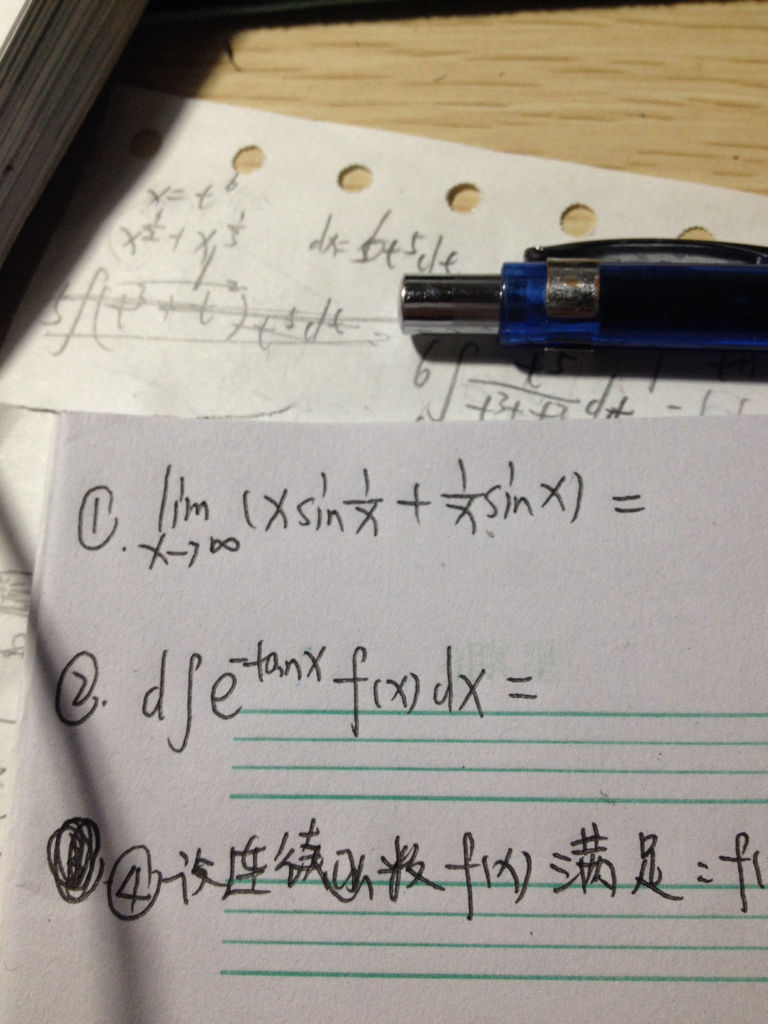 x = t^6
x^{1/2} + x^{1/3}
dx = 6t^5dt
6∫ t^5/(t^3+t^2) dt
①. lim_{x→∞} (x sin 1/x + 1/x sin x) =
②. d∫e^{-tanx} f(x) dx =
④设连续函数 f(x) 满足: f(